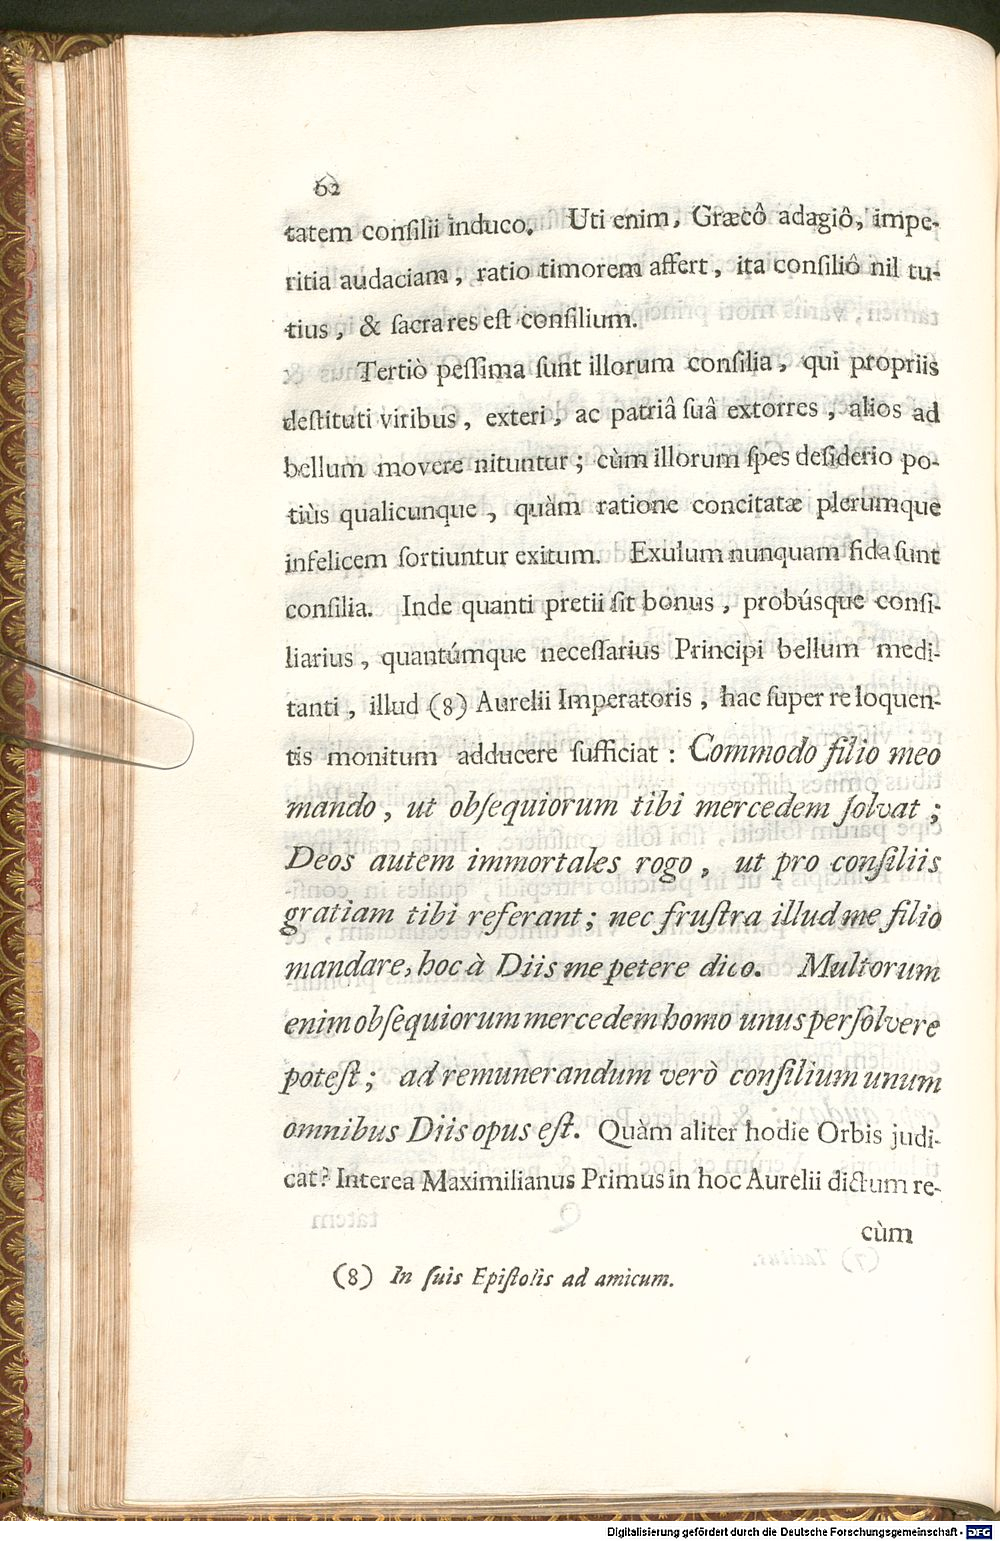 62
tatem consilii induco. Uti enim, Græcô adagiô, impe-
ritia audaciam, ratio timorem affert, ita consiliô nil tu-
tius, & sacra res est consilium.
Tertiò pessima sunt illorum consilia, qui propriis
destituti viribus, exteri, ac patriâ suâ extorres, alios ad
bellum movere nituntur; cùm illorum spes desiderio po-
tiùs qualicunque, quàm ratione concitatæ plerumque
infelicem sortiuntur exitum. Exulum nunquam fida sunt
consilia. Inde quanti pretii sit bonus, probúsque consi-
liarius, quantúmque necessarius Principi bellum medi-
tanti, illud (8) Aurelii Imperatoris, hac super re loquen-
tis monitum adducere sufficiat: Commodo filio meo
mando, ut obsequiorum tibi mercedem solvat;
Deos autem immortales rogo, ut pro consiliis
gratiam tibi referant; nec frustra illud me filio
mandare, hoc à Diis me petere dico. Multorum
enim obsequiorum mercedem homo unus persolvere
potest; ad remunerandum verò consilium unum
omnibus Diis opus est. Quàm aliter hodie Orbis judi-
cat? Interea Maximilianus Primus in hoc Aurelii dictum re-
cùm
(8) In suis Epistolis ad amicum.
Digitalisierung gefördert durch die Deutsche Forschungsgemeinschaft - DFG